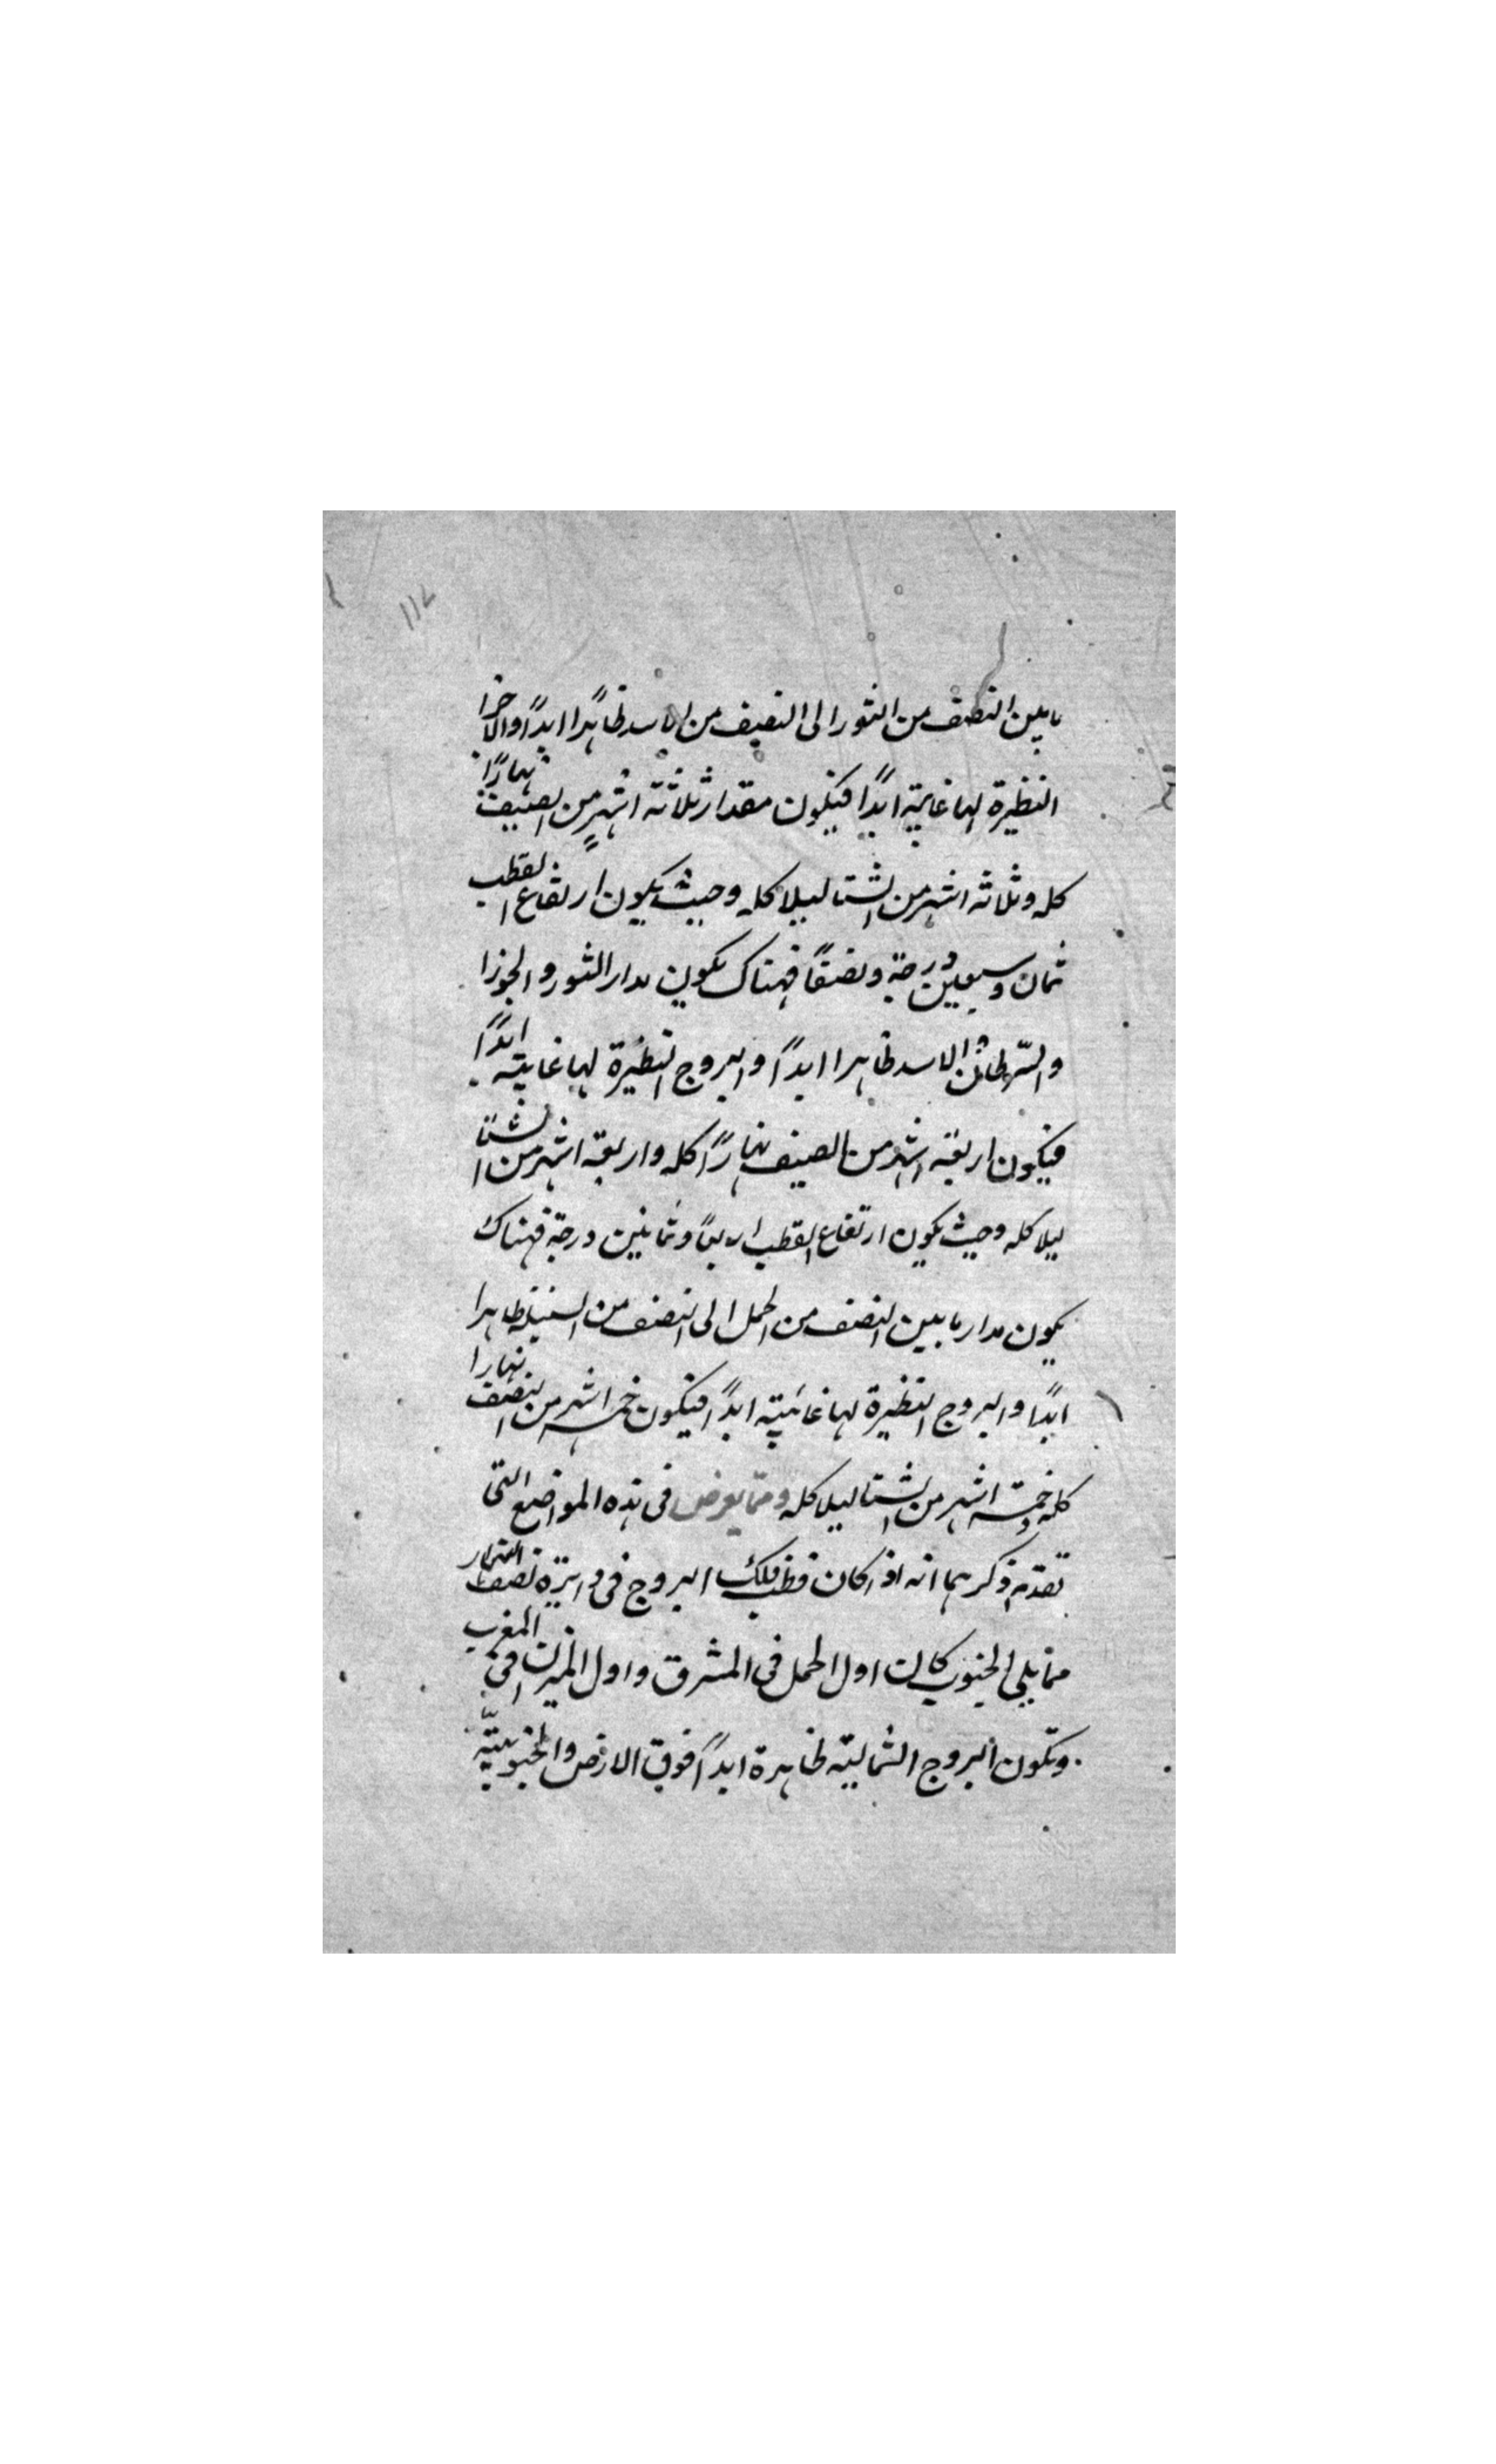 ١١٢
ما بين النصف من الثور الى النصف من الاسد ظاهرًا ابدًا والاخرا
النظيرة لها غايبة ابدًا فيكون مقدار ثلاثة اشهرٍ من الصيف نهارًا
كله وثلاثه اشهر من الشتا ليلا كله وحيث يكون ارتفاع القطب
ثمان وسبعين درجة ونصفًا فهناك يكون مدار الثور والجوزا
والسّرطان والاسد ظاهرا ابدًا والبروج النظيرة لها غايبة ابدًا
فيكون اربعة اشهر من الصيف نهارًا كله واربعة اشهر من الشتا
ليلا كله وحيث يكون ارتفاع القطب اربعًا وثمانين درجة فهناك
يكون مدار ما بين النصف من الحمل الى النصف من السنبلة ظاهرا
ابدًا والبروج النظيرة لها غائبة ابدًا فيكون خمسة اشهر من النصف نهارا
كله وخمسة اشهر من الشتا ليلا كله ومما يعرض فى هذه المواضع التى
تقدم ذكرهما انه اذا كان قطب فلك البروج فى دايرة نصف النهار
مما يلى الجنوب كان اول الحمل فى المشرق واول الميزان فى المغرب
وتكون البروج الشمالية ظاهرة ابدًا فوق الارض والجنوبيّة